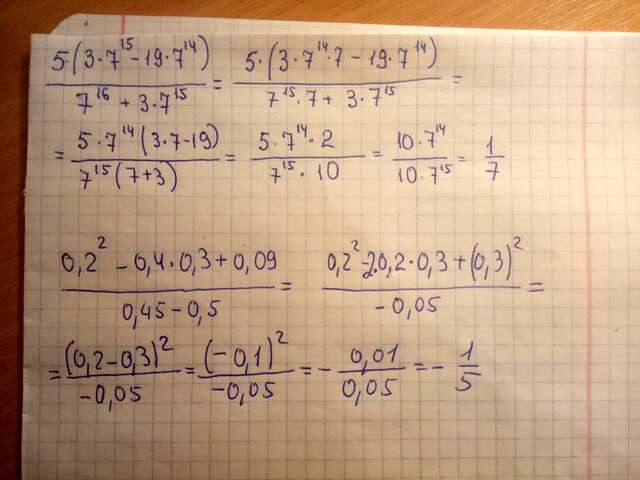 5·(3·7¹⁵ - 19·7¹⁴) / 7¹⁶ + 3·7¹⁵ = 5·(3·7¹⁴·7 - 19·7¹⁴) / 7¹⁵·7 + 3·7¹⁵ =
= 5·7¹⁴(3·7-19) / 7¹⁵(7+3) = 5·7¹⁴·2 / 7¹⁵·10 = 10·7¹⁴ / 10·7¹⁵ = 1/7
0,2² - 0,4·0,3 + 0,09 / 0,45 - 0,5 = 0,2² - 2·0,2·0,3 + (0,3)² / -0,05 =
= (0,2-0,3)² / -0,05 = (-0,1)² / -0,05 = - 0,01 / 0,05 = - 1/5